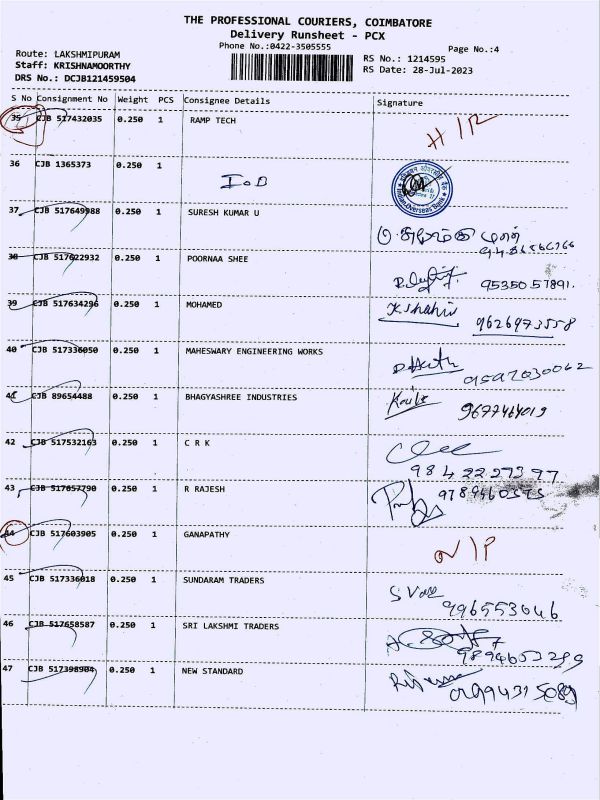 THE PROFESSIONAL COURIERS, COIMBATORE
Delivery Runsheet - PCX
Phone No.:0422-3505555
Page No.:4
Route: LAKSHMIPURAM
Staff: KRISHNAMOORTHY
DRS No.: DCJB121459504
RS No.: 1214595
RS Date: 28-Jul-2023
S No Consignment No Weight PCS Consignee Details Signature
35 CJB 517432035 0.250 1 RAMP TECH
36 CJB 1365373 0.250 1 IOB
Indian Overseas Bank
37 CJB 517649988 0.250 1 SURESH KUMAR U
38 CJB 517622932 0.250 1 POORNAA SHEE 9535057891.
39 CJB 517634296 0.250 1 MOHAMED K.Shahir 9626973558
40 CJB 517336050 0.250 1 MAHESWARY ENGINEERING WORKS 9597030062
41 CJB 89654488 0.250 1 BHAGYASHREE INDUSTRIES 9677464019
42 CJB 517532163 0.250 1 C R K 9842227397
43 CJB 517657790 0.250 1 R RAJESH 9789460595
44 CJB 517603905 0.250 1 GANAPATHY N/P
45 CJB 517336018 0.250 1 SUNDARAM TRADERS 996553046
46 CJB 517658587 0.250 1 SRI LAKSHMI TRADERS 9894653289
47 CJB 517398904 0.250 1 NEW STANDARD 09994315089